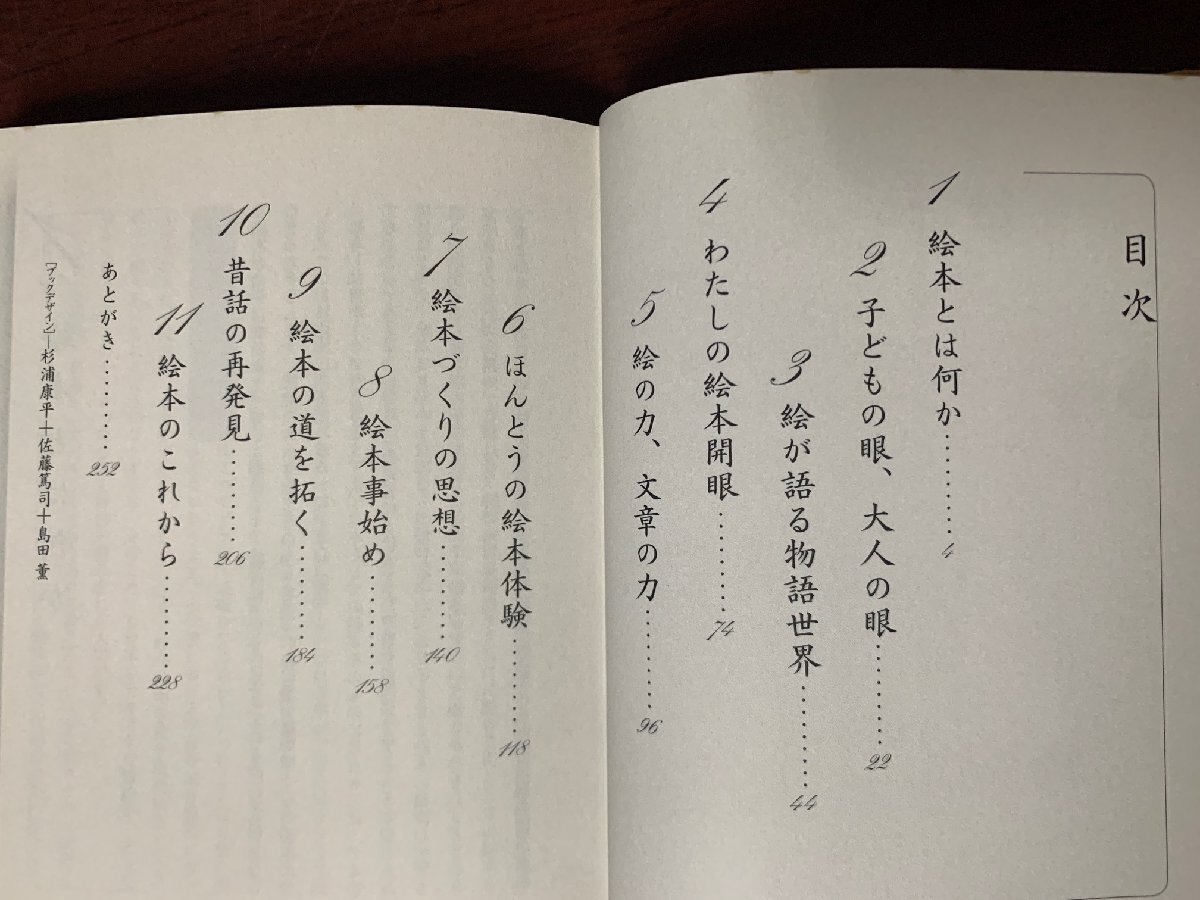 目次
1 絵本とは何か………4
2 子どもの眼、大人の眼………22
3 絵が語る物語世界………44
4 わたしの絵本開眼………74
5 絵の力、文章の力………96
6 ほんとうの絵本体験………118
7 絵本づくりの思想………140
8 絵本事始め………158
9 絵本の道を拓く………184
10 昔話の再発見………206
11 絵本のこれから………228
あとがき………252
[ブックデザイン]—杉浦康平+佐藤篤司+島田 薫